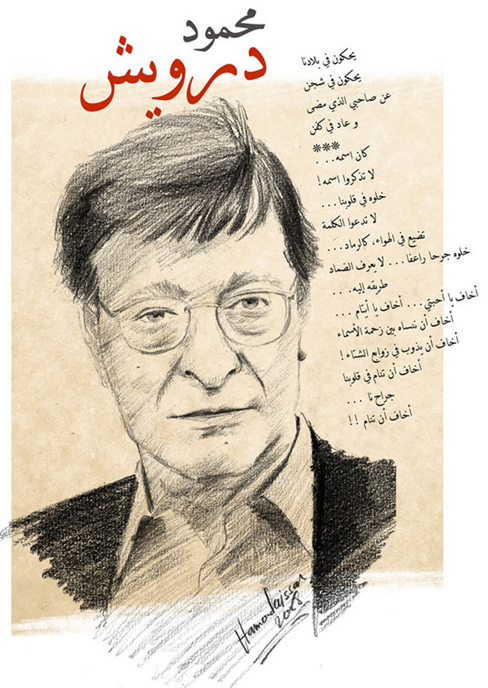 محمود
درويش
يحكون في بلادنا
يحكون في شجن
عن صاحبي الذي مضى
و عاد في كفن
***
كان اسمه. . .
لا تذكروا اسمه!
خلوه في قلوبنا...
لا تدعوا الكلمة
تضيع في الهواء، كالرماد...
خلوه جرحا راعفا... لا يعرف الضماد
طريقه إليه. . .
أخاف يا أحبتي... أخاف يا أيتام ...
أخاف أن ننساه بين زحمة الأسماء
أخاف أن يذوب في زوابع الشتاء!
أخاف أن تنام في قلوبنا
جراحنا ...
أخاف أن تنام !!
2008